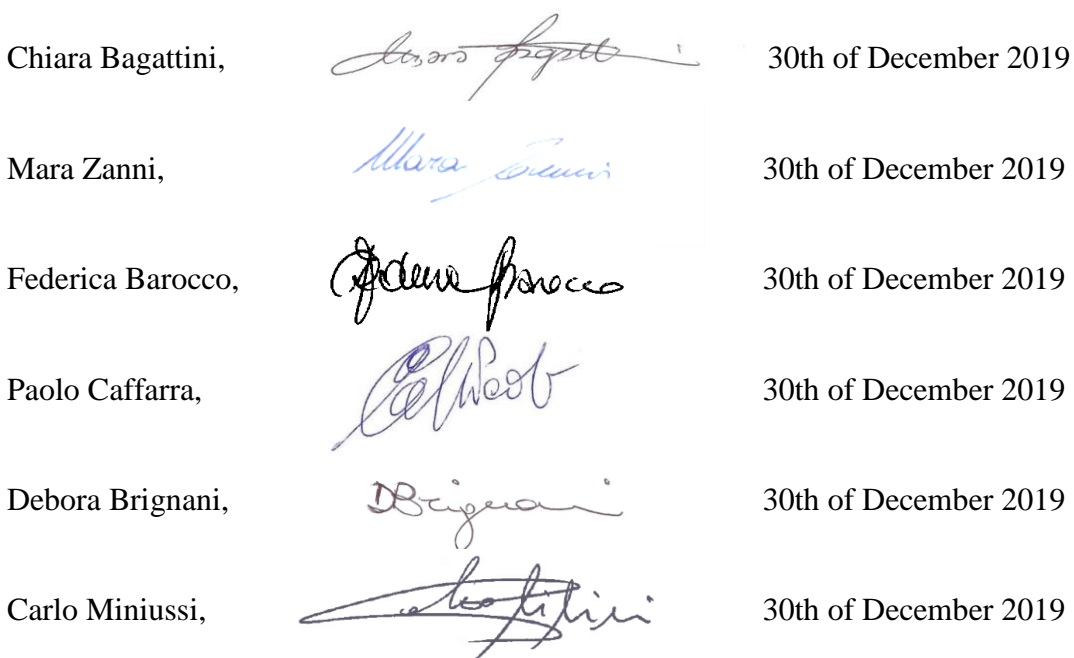 Chiara Bagattini, 30th of December 2019
Mara Zanni, Mara Zanni 30th of December 2019
Federica Barocco, Federica Barocco 30th of December 2019
Paolo Caffarra, 30th of December 2019
Debora Brignani, DBrignani 30th of December 2019
Carlo Miniussi, 30th of December 2019